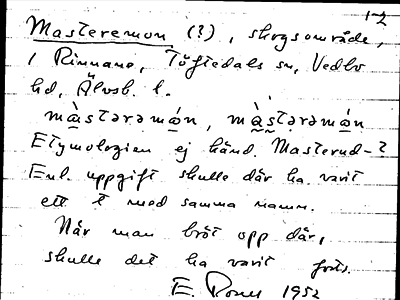 1-2
Masteremon (?), skogsområde,
i Rinnane, Töftedals sn, Vedbo
hd, Älvsb. l.
màstərəmán, màstərəmán
Etymologien ej känd. Masterud-?
Enl. uppgift skulle där ha varit
ett t med samma namn.
När man bröt opp där,
skulle det ha varit forts.
E. 1952